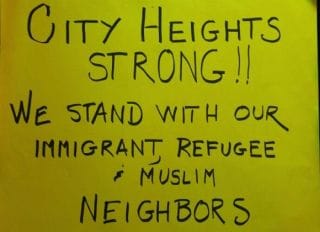 CITY HEIGHTS
STRONG!!
WE STAND WITH OUR
IMMIGRANT, REFUGEE
& MUSLIM
NEIGHBORS